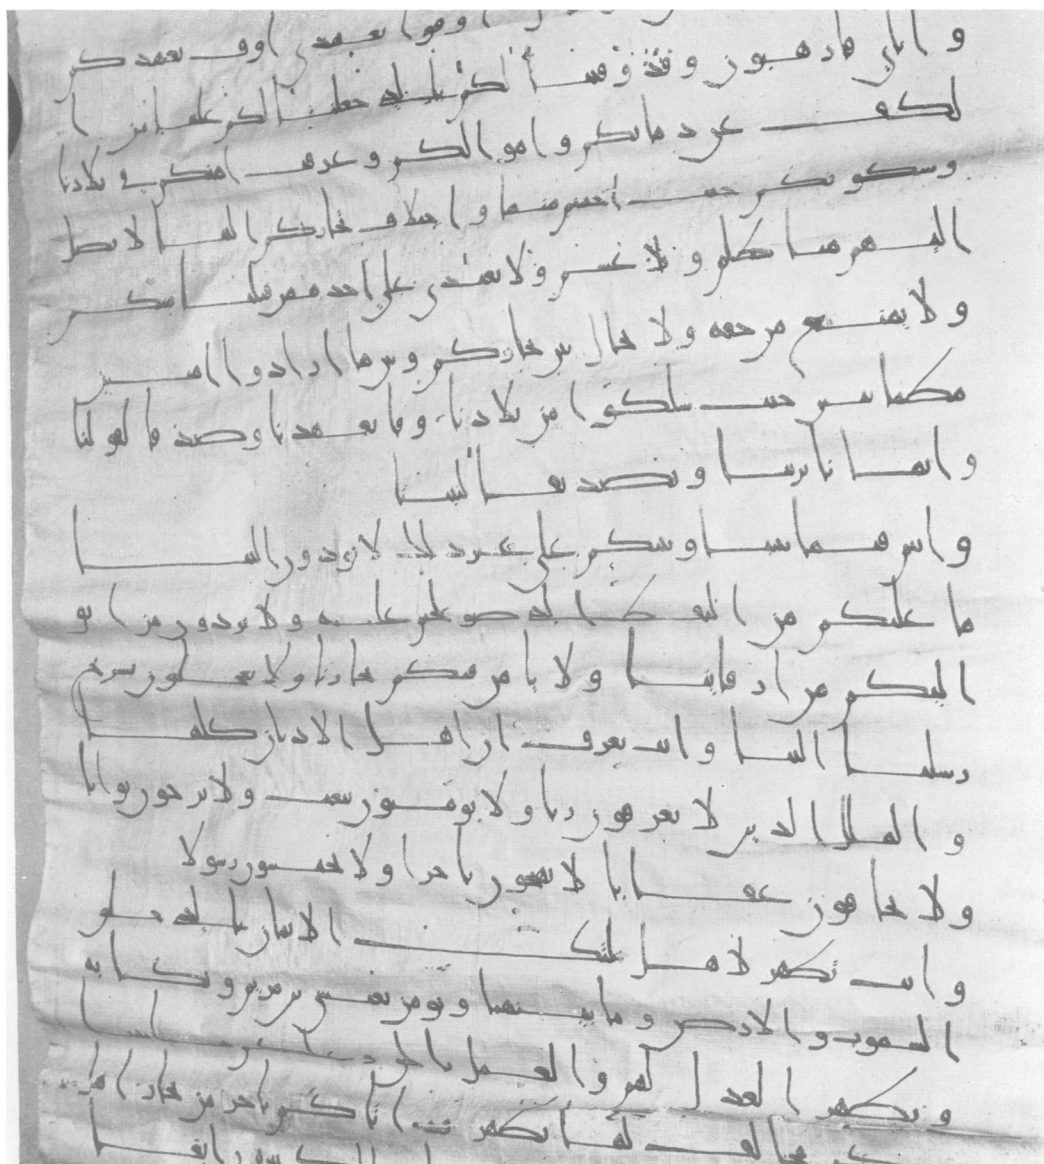 واوفوا بعهدي اوف بعهدكم
واياي فارهبون وقد وفينا لكم بالذي جعلنا لكم علينا من ا
لكف عن دمائكم واموالكم وعرف امنكم في بلادنا
وسكونكم حيث احببتم منها واختلاف تجاركم الينا لا يصل
اليهم منا ظلم ولا غشم ولا يعتدى على احد منهم قبلنا منكم
ولا يمنع من حقه ولا يحال بين تجاركم وبين ما ارادوا امنين
مطمانين حيث سلكوا من بلادنا وفا بعهدنا وصدقا لقولنا
وايمانا بربنا وتصديقا لنبينا
وانتم فيما بيننا وبينكم على غير ذلك لا تودون الينا
ما عليكم من البقط الذي صولحتم عليه ولا تردون من ابق
اليكم من ارقاينا ولا يامن فيكم تجارنا ولا تعجلون تسريح
رسلنا الينا وانت تعرف ان اهل الاديان كلها
والملل الذين لا يعرفون ربا ولا يومنون ببعث ولا يرجون ثوابا
ولا يخافون عقابا لا يهيجون تاجرا ولا يحبسون رسولا
وانت تظهر لاهل ملتك الايمان بالذي خلق
السموت والارض وما بينهما وتومن بعيسى بن مريم وبكتابه
وتظهر العدل لهم والعمل بالحق
مخالف لما تظهر اتاكم تاجر من تجار اهل